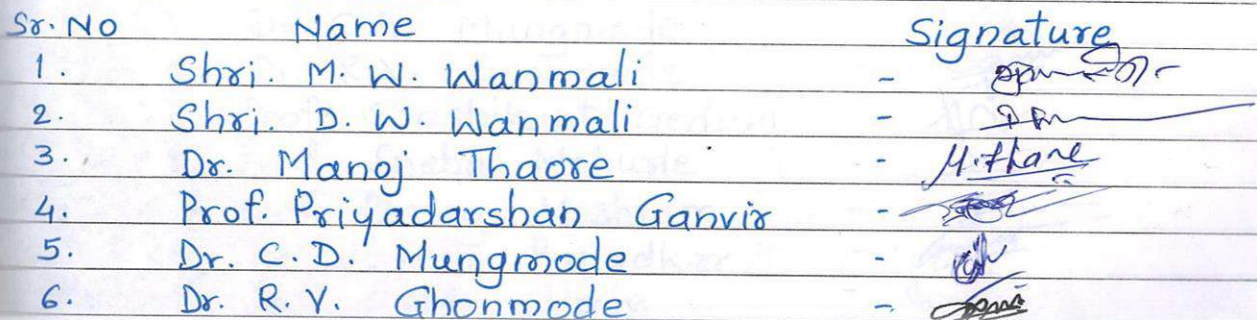 Sr. No Name Signature
1. Shri. M. W. Wanmali -
2. Shri. D. W. Wanmali -
3. Dr. Manoj Thaore - M.thane
4. Prof. Priyadarshan Ganvir -
5. Dr. C. D. Mungmode -
6. Dr. R. V. Ghonmode -